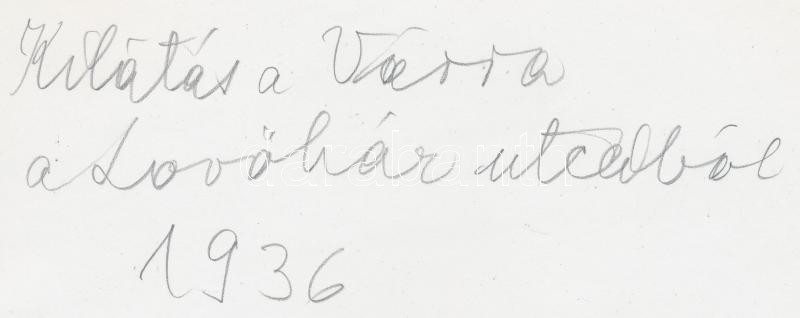 Kilátás a Várra
a Lovóház utcából
1936